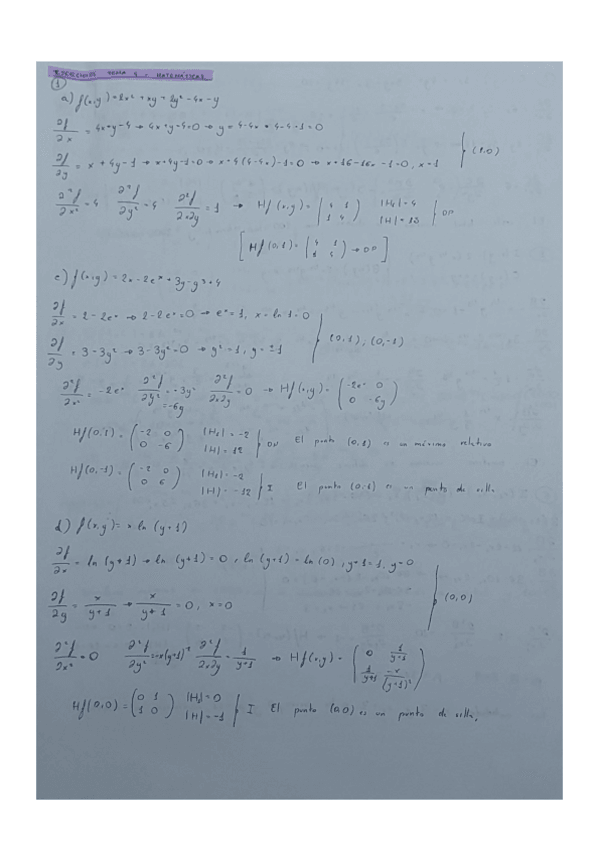 EJERCICIOS TEMA 9 - MATEMÁTICAS
1
a) f(x,y) = 2x² + xy + 2y² - 4x - y
∂f/∂x = 4x+y-4 → 4x+y-4=0 → y = 4-4x = 4-4·1=0
∂f/∂y = x + 4y - 1 → x+4y-1=0 → x+4(4-4x)-1=0 → x+16-16x-1=0, x=1 } (1,0)
∂²f/∂x² = 4 ∂²f/∂y² = 4 ∂²f/∂x∂y = 1 → Hf(x,y) = (4 1 / 1 4) |H1|=4 |H|=15 } DP
[Hf(0,1) = (4 1 / 1 4) → DP]
c) f(x,y) = 2x - 2eˣ + 3y - y³ + 4
∂f/∂x = 2 - 2eˣ → 2-2eˣ=0 → eˣ=1, x=ln 1=0
∂f/∂y = 3-3y² → 3-3y²=0 → y²=1, y=±1 } (0,1), (0,-1)
∂²f/∂x² = -2eˣ ∂²f/∂y² = -3y² = -6y ∂²f/∂x∂y = 0 → Hf(x,y) = (-2eˣ 0 / 0 -6y)
Hf(0,1) = (-2 0 / 0 -6) |H1|=-2 |H|=12 } DN El punto (0,1) es un máximo relativo
Hf(0,-1) = (-2 0 / 0 6) |H1|=-2 |H|=-12 } I El punto (0,-1) es un punto de silla
d) f(x,y) = x ln (y+1)
∂f/∂x = ln (y+1) → ln (y+1) = 0, ln (y+1) = ln (0), y+1=1, y=0
∂f/∂y = x/(y+1) → x/(y+1) = 0, x=0 } (0,0)
∂²f/∂x² = 0 ∂²f/∂y² = -x(y+1)² ∂²f/∂x∂y = 1/(y+1) → Hf(x,y) = (0 1/(y+1) / 1/(y+1) -x/(y+1)²)
Hf(0,0) = (0 1 / 1 0) |H1|=0 |H|=-1 } I El punto (0,0) es un punto de silla.